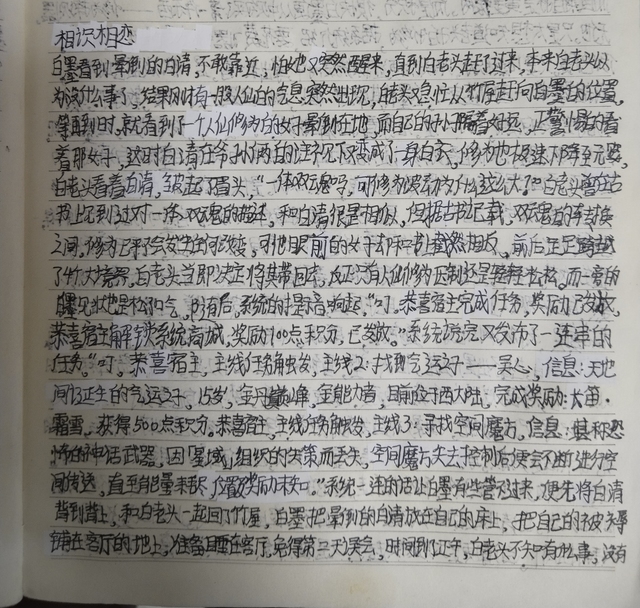 相识相恋
白墨看到晕倒的白清,不敢靠近,怕他又突然醒来,直到白老头赶了过来,本来白老头以
为没什么事了,结果刚才有一股人仙的气息突然出现,白老头又急忙从竹屋赶向白墨的位置,
等到时,就看到了一个人仙修为的女子晕倒在地,而自己的孙子隔着好远,正警惕的看
着那女子,这时白清在爷孙俩的注视下变成了一身白衣,修为也极速下降至元婴,
白老头看着白清,皱起了眉头,“一体双魂吗,可修为波动为什么这么大?”白老头曾在古
书上见到过对一体双魂的描述,和白清很是相似,但据古书记载,双魂者的转换
之间,修为是不会发生任何改变,可他眼前的女子却和书上截然相反,前后足足跨越
了4个大境界,白老头当即决定将其带回去,反正只有人仙修为压制还是轻轻松松,而一旁的
白墨见状也是松了口气,随后,系统的提示音响起,“叮,恭喜宿主完成任务,奖励已发放,
恭喜宿主解锁系统商城,奖励100点积分,已发放。”系统说完又发布了一连串的
任务。“叮,恭喜宿主,主线任务触发,主线2:找到气运之子——吴心,信息:天地
间诞生的气运之子,15岁,金丹巅峰,全能力者,目前位于西大陆,完成奖励:大笛·
霜雪,获得500点积分。恭喜宿主,主线任务触发,主线3:寻找空间魔方,信息:堪称恐
怖的神话武器,因「星域」组织的失策而丢失,空间魔方失去控制后便会不断进行空
间传送,直至能量耗尽,位置奖励未知。”系统一连的话让白墨有些蒙过来,便先将白清
背到背上,和白老头一起回了竹屋,白墨把晕倒的白清放在自己的床上,把自己的被褥
铺在客厅的地上,准备自睡在客厅,免得第二天误会,时间到了正午,白老头不知有何事,没有